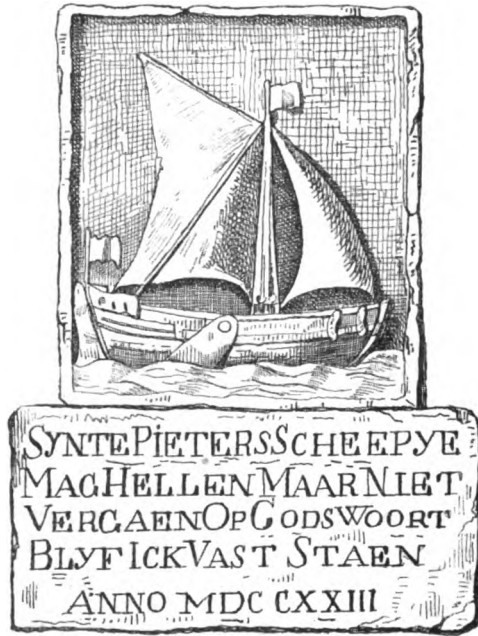 SYNTE PIETERS SCHEEPYE
MAG HELLEN MAAR NIET
VERGAEN OP GODS WOORT
BLYF ICK VAST STAEN
ANNO MDCCXXIII